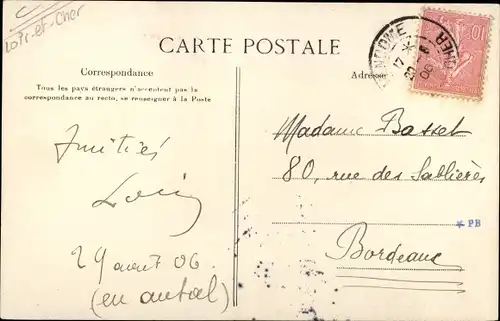 Loir-et-Cher
CARTE POSTALE
Correspondance
Tous les pays étrangers n'acceptent pas la
correspondance au recto, se renseigner à la Poste
Adresse
10
17
06
Madame Basset
80, rue des Sablières
* PB
Bordeaux
29 août 06
(en auto)